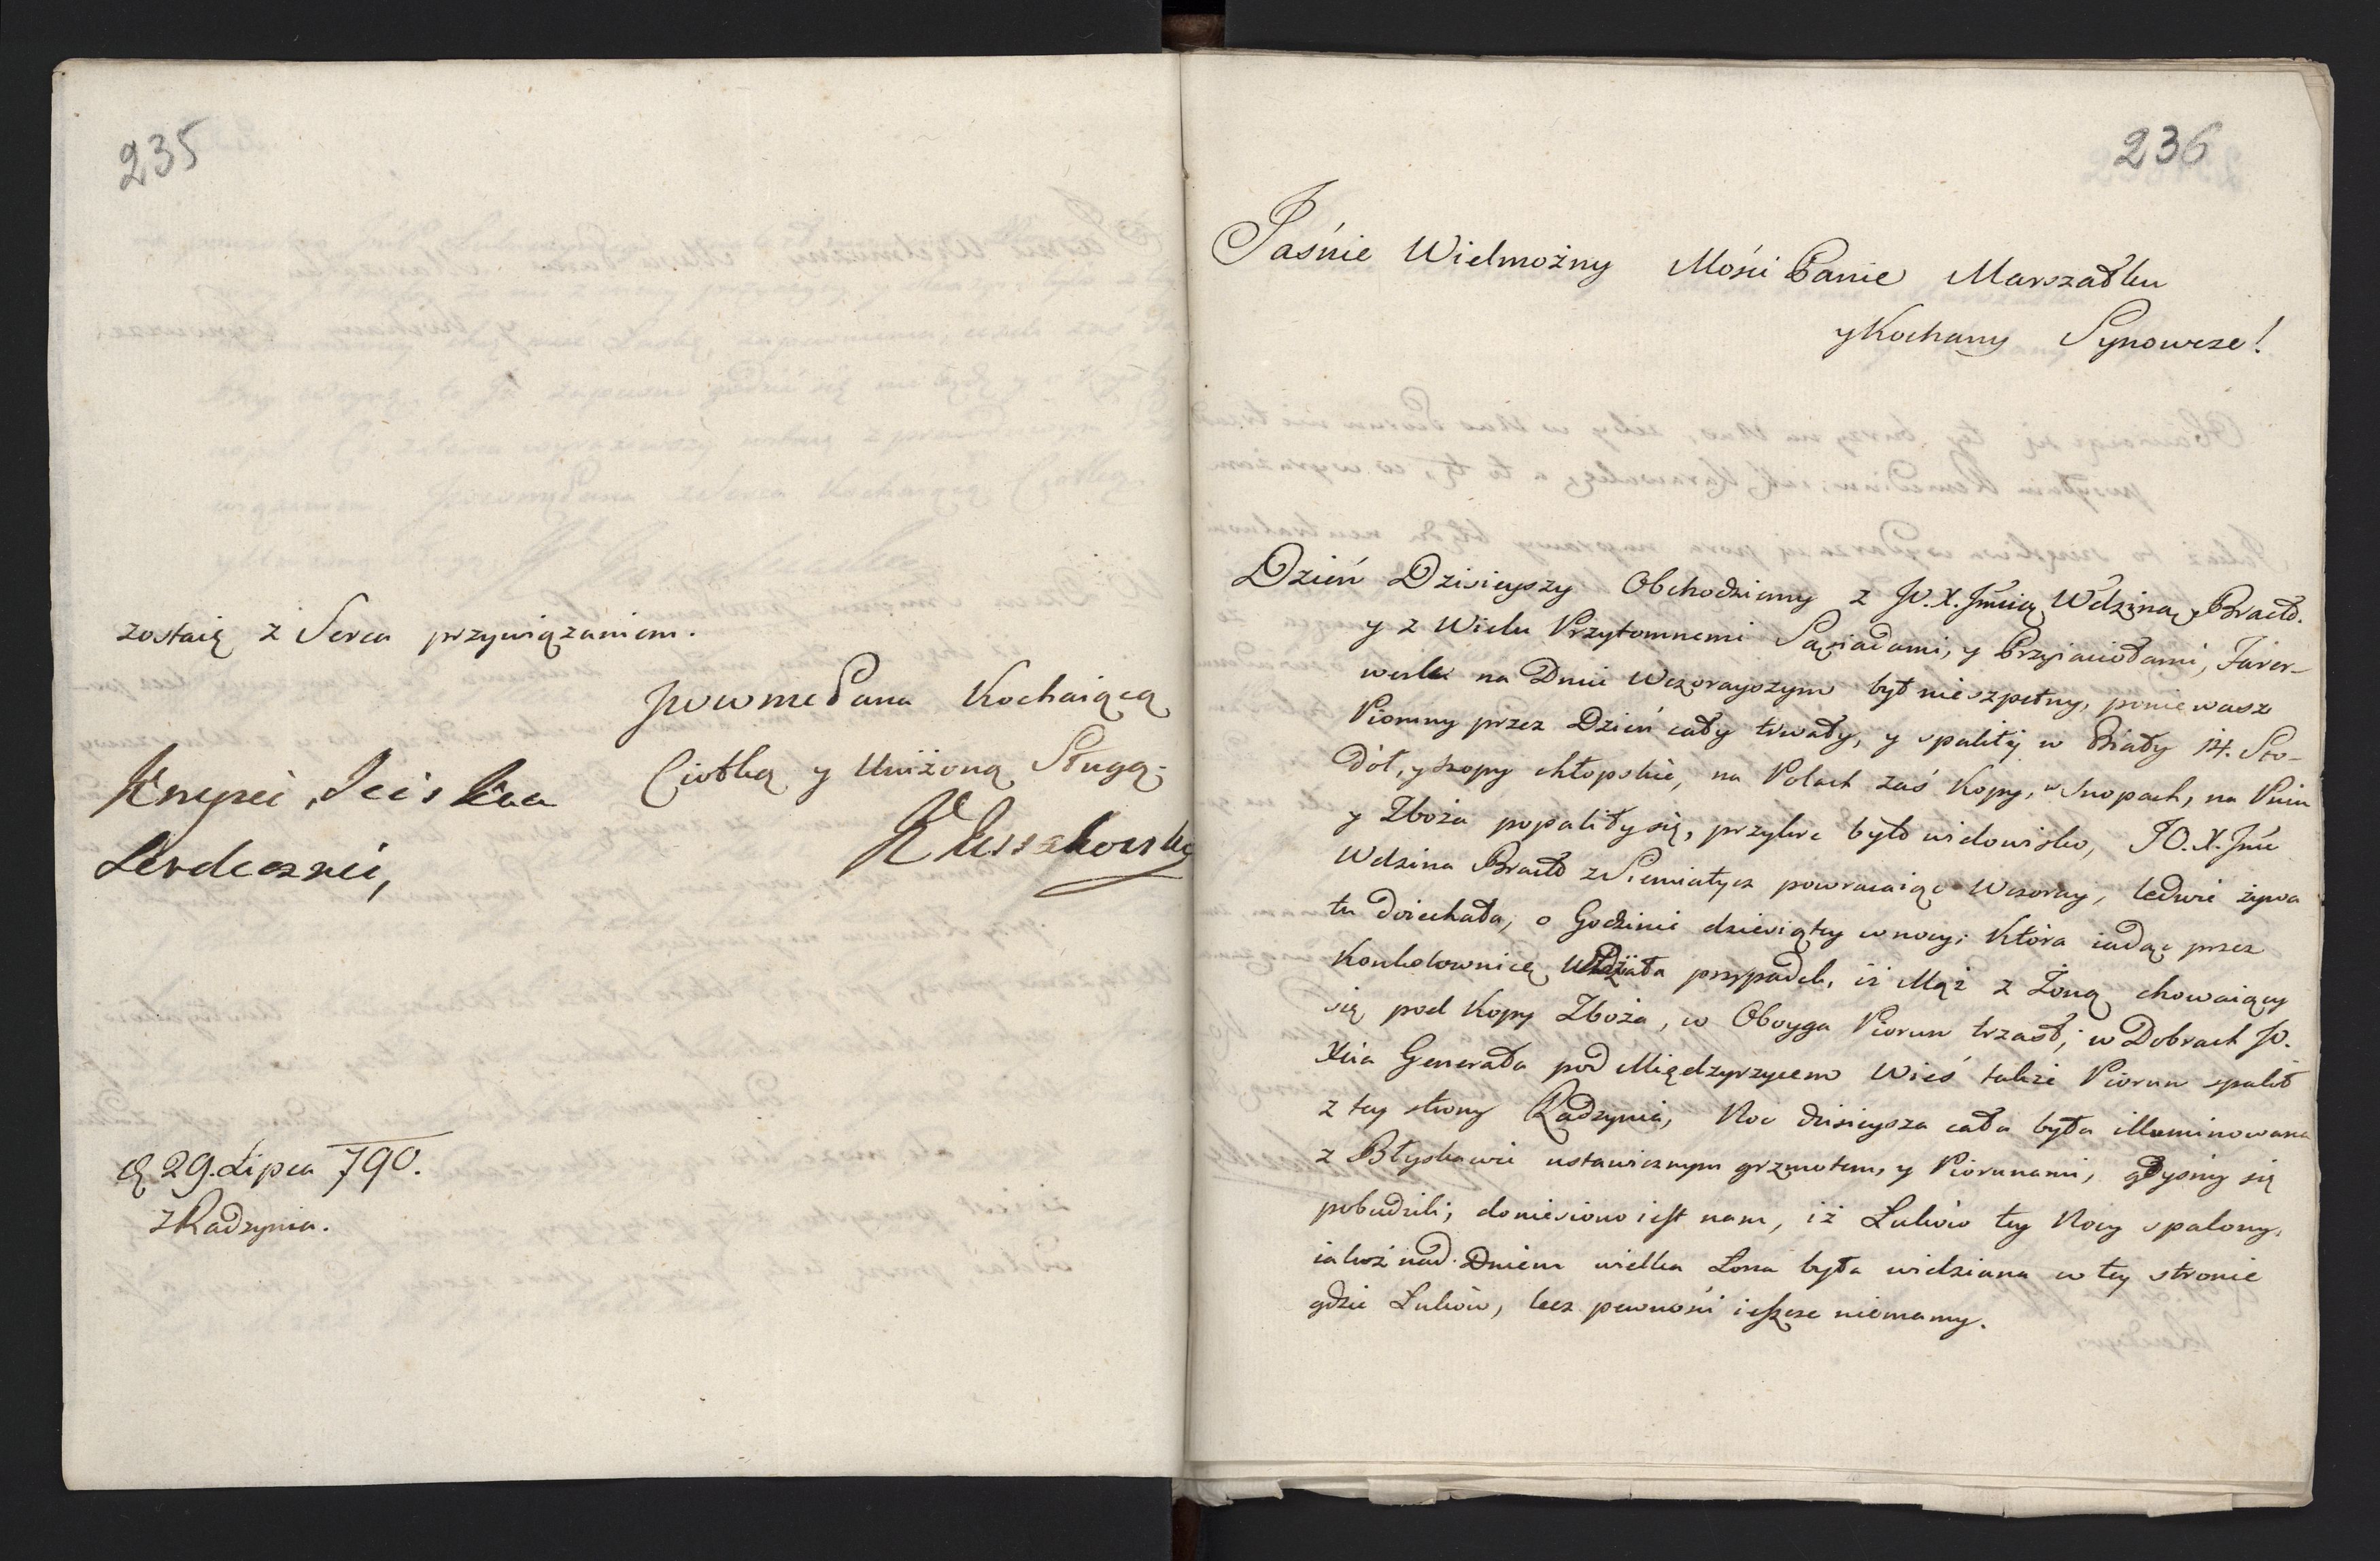 235
zostaię z Serca przywiązaniem.
JWWMćPana Kochaiącą
Ciotką y Uniżoną Sługą.
Knypsi Sciskaa
Serdecznie,
d 29. Lipca 790.
z Radzynia.
236
Jaśnie Wielmożny Mości Panie Marszałku
y Kochany Synowcze!
Dzień Dzisieyszy Obchodziemy z JO.X.Jmcią Wdziną Bracł.
y z Wielu Przytomnemi Sąsiadami, y Przyiaciołami, Fajer-
werk na Dniu Wczorayszym był nieszpetny, poniewasz
Pioruny przez Dzień cały trwały, y spaliły w Biały 14. Sto-
dół, y szopy chłopskie, na Polach zaś Kopy, w Snopach, na Pniu
y Zboża popaliły się, przykre było widowisko, JO.X.Jmć
Wdzina Bracł z Siemiatycz powracaiąc Wczoray, ledwie żywa
tu doiechała, o Godzinie dziewiątey w nocy; Która iadąc przez
Konkolownicę Widziała przypadek, iż Mąż z Żoną chowaiący
się pod Kopy Zboża, w Oboyga Piorun trzasł; w Dobrach JO.
Xcia Generała pod Międzyrzycem Wieś także Piorun spalił
z tey strony Radzynia, Noc dzisieysza cała była illuminowana
z Błyskawic ustawicznym grzmotem, y Piorunami, gdyśmy się
pobudzili; doniesiono iest nam, iż Łuków tey Nocy spalony,
iakoż nad Dniem wielka Łona była widziana w tey stronie
gdzie Łuków, lecz pewności ieszcze niemamy.